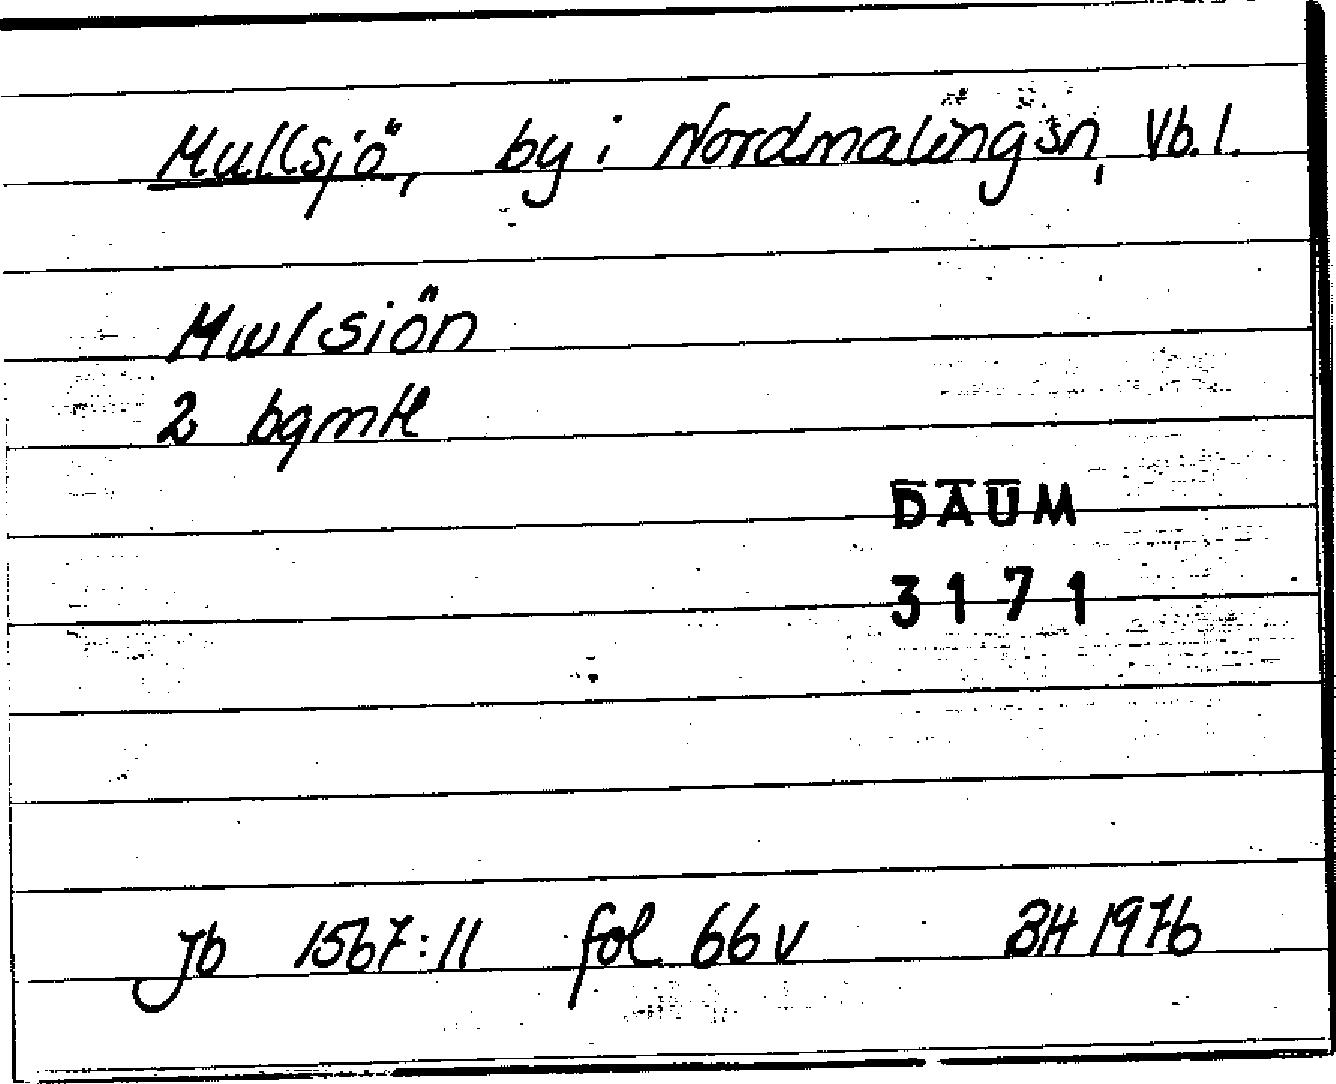 Mullsjö, by i Nordmalingsn, Vb. l.
Mwlsiön
2 bgmtl
DAUM
3171
Jb 1567:11 fol 66 v BH 1976